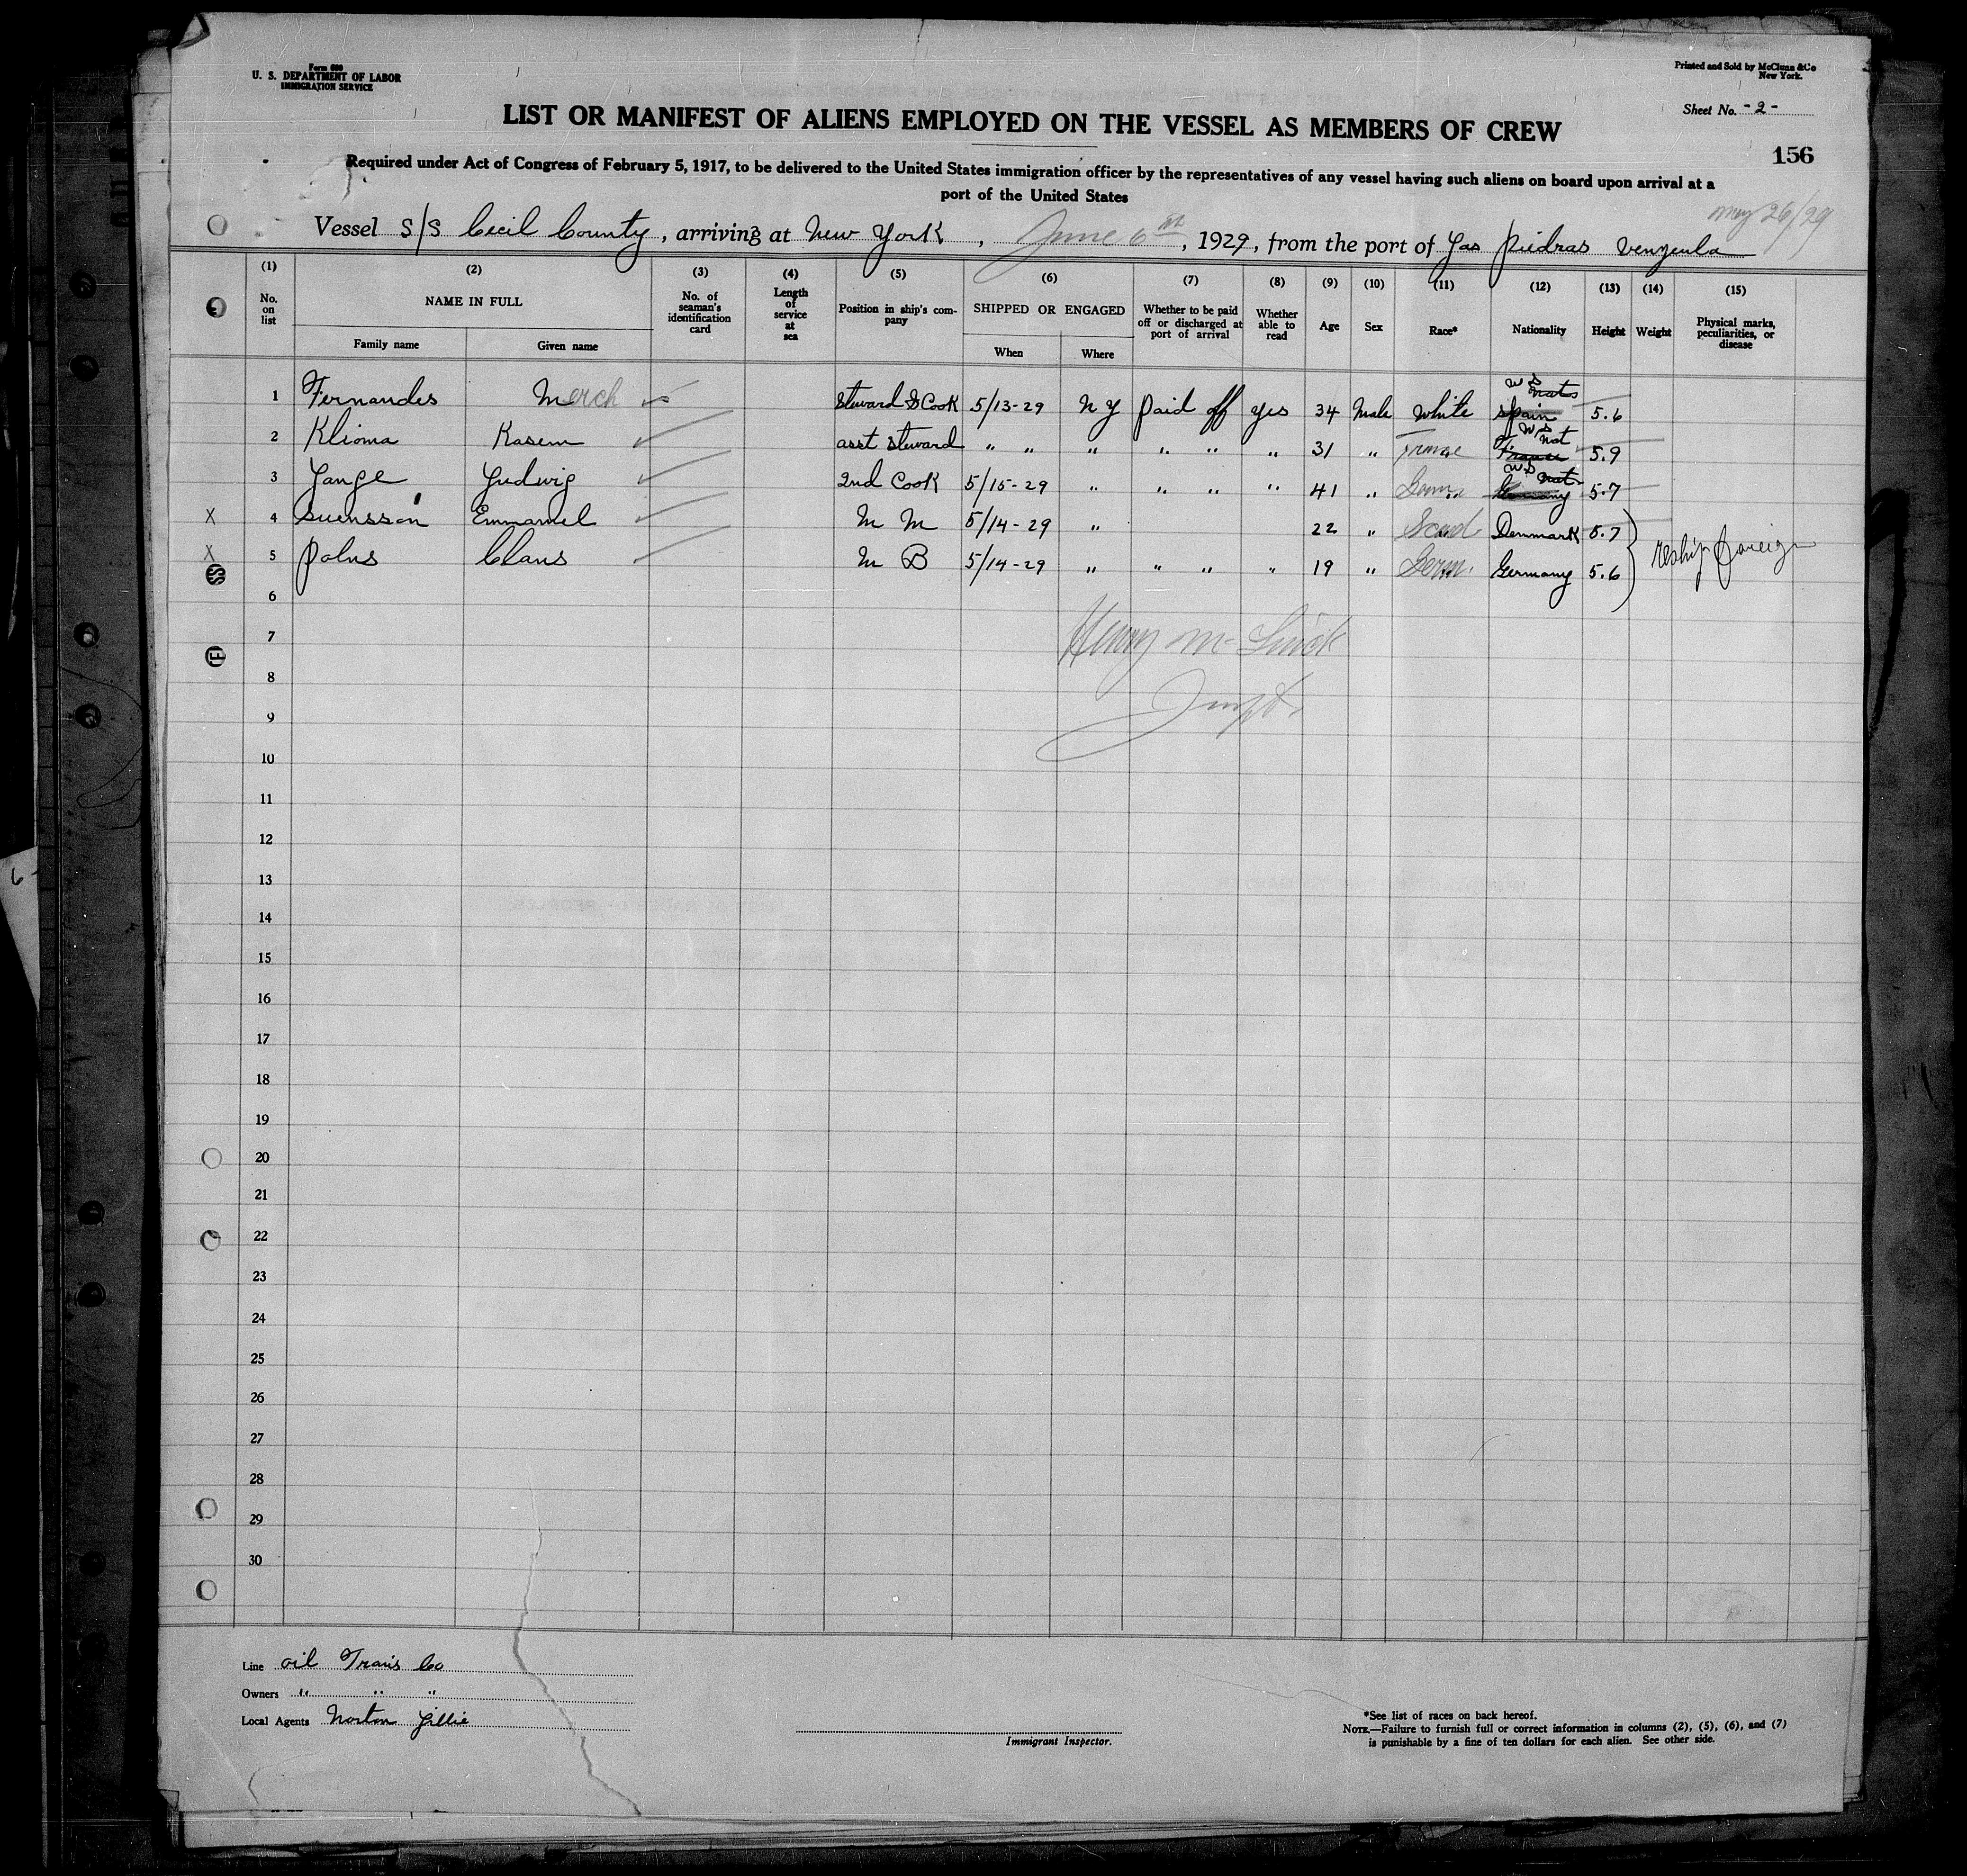 Form 680
U. S. DEPARTMENT OF LABOR
IMMIGRATION SERVICE
Printed and Sold by McClunn & Co
New York.
Sheet No. - 2 -
LIST OR MANIFEST OF ALIENS EMPLOYED ON THE VESSEL AS MEMBERS OF CREW
156
Required under Act of Congress of February 5, 1917, to be delivered to the United States immigration officer by the representatives of any vessel having such aliens on board upon arrival at a
port of the United States
May 26/29
Vessel S/S Cecil County, arriving at New York, June 6th, 1929, from the port of Las Piedras Venzeula
(1) (2) (3) (4) (5) (6) (7) (8) (9) (10) (11) (12) (13) (14) (15)
No. on list NAME IN FULL No. of seaman's identification card Length of service at sea Position in ship's company SHIPPED OR ENGAGED Whether to be paid off or discharged at port of arrival Whether able to read Age Sex Race* Nationality Height Weight Physical marks, peculiarities, or disease
Family name Given name When Where
1 Fernandes Merch Steward & Cook 5/13-29 N Y paid off yes 34 Male White Spain 5.6
2 Klioma Kasem asst steward " " " " " " 31 " France 5.9
3 Lange Ludwig 2nd Cook 5/15-29 " " " " 41 " Germ. Germany 5.7
X 4 Suensson Emmanuel M M 5/14-29 " 22 " Scand Denmark 5.7
X 5 Pohns Claus M B 5/14-29 " " " " 19 " Germ. Germany 5.6 reship foreign
SS
6
7 Henry
F
8
9
10
11
12
13
14
15
16
17
18
19
20
21
22
23
24
25
26
27
28
29
30
Line Oil Trans Co
Owners " " "
Local Agents Norton Lillie
Immigrant Inspector.
*See list of races on back hereof.
NOTE.—Failure to furnish full or correct information in columns (2), (5), (6), and (7)
is punishable by a fine of ten dollars for each alien. See other side.